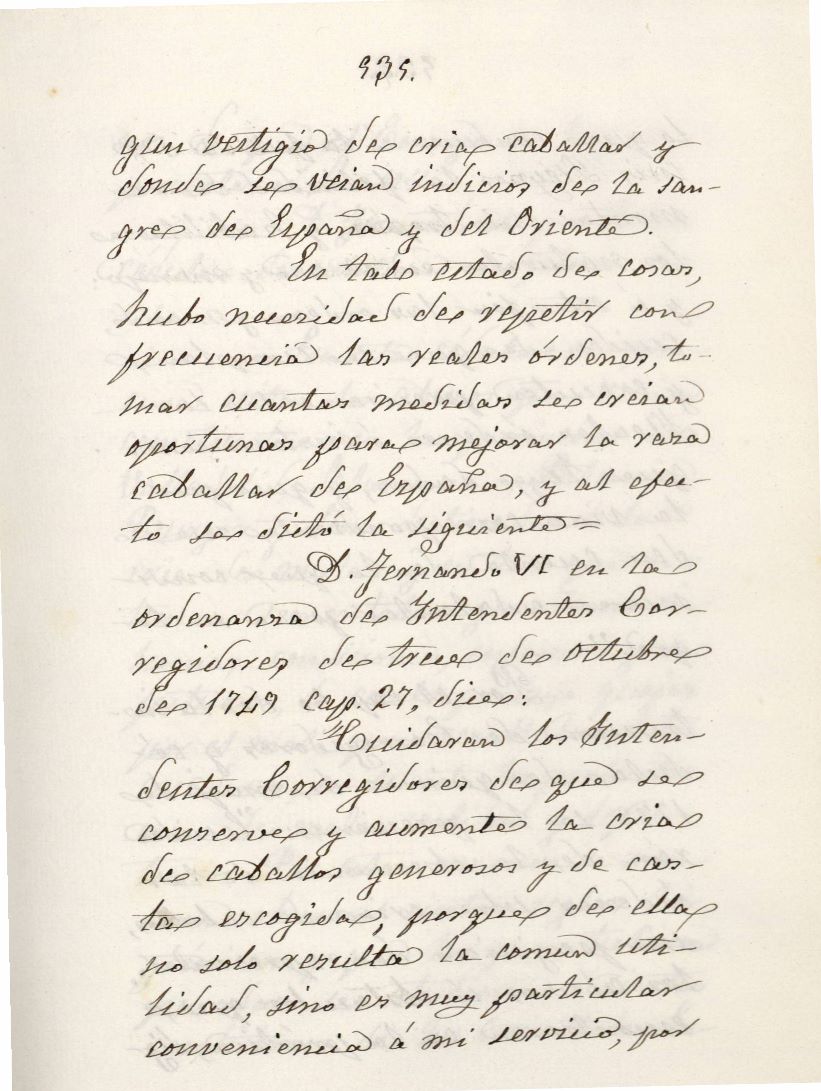 535.
gun vestigio de cria caballar y
donde se veian indicios de la san-
gre de España y del Oriente.
En tal estado de cosas,
hubo necesidad de repetir con
frecuencia las reales órdenes, to-
mar cuantas medidas se creian
oportunas para mejorar la raza
caballar de España, y al efec-
to se dictó la siguiente=
D. Fernando VI en la
ordenanza de Intendentes Cor-
regidores de trece de octubre
de 1749 cap. 27, dice:
"Cuidaran los Inten-
dentes Corregidores de que se
conserve y aumente la cria
de caballos generosos y de cas-
ta escogida, porque de ella
no solo resulta la comun uti-
lidad, sino es muy particular
conveniencia á mi servicio, por